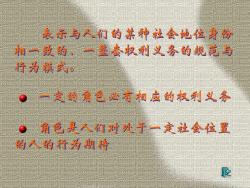 表示与人们的某种社会地位身份
相一致的、一整套权利义务的规范与
行为模式。
一定的角色必有相应的权利义务
角色是人们对处于一定社会位置
的人的行为期待